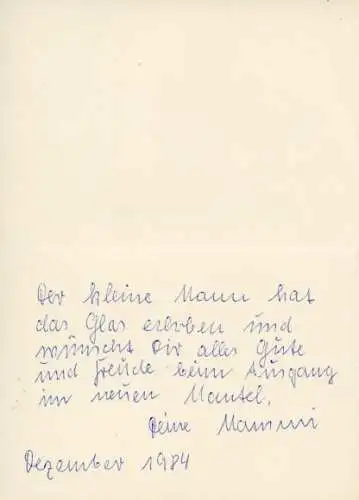 Der kleine Mann hat
das Glas erhoben und
wünscht Dir alles Gute
und Freude beim Ausgang
im neuen Mantel.
Deine Mammi
Dezember 1984